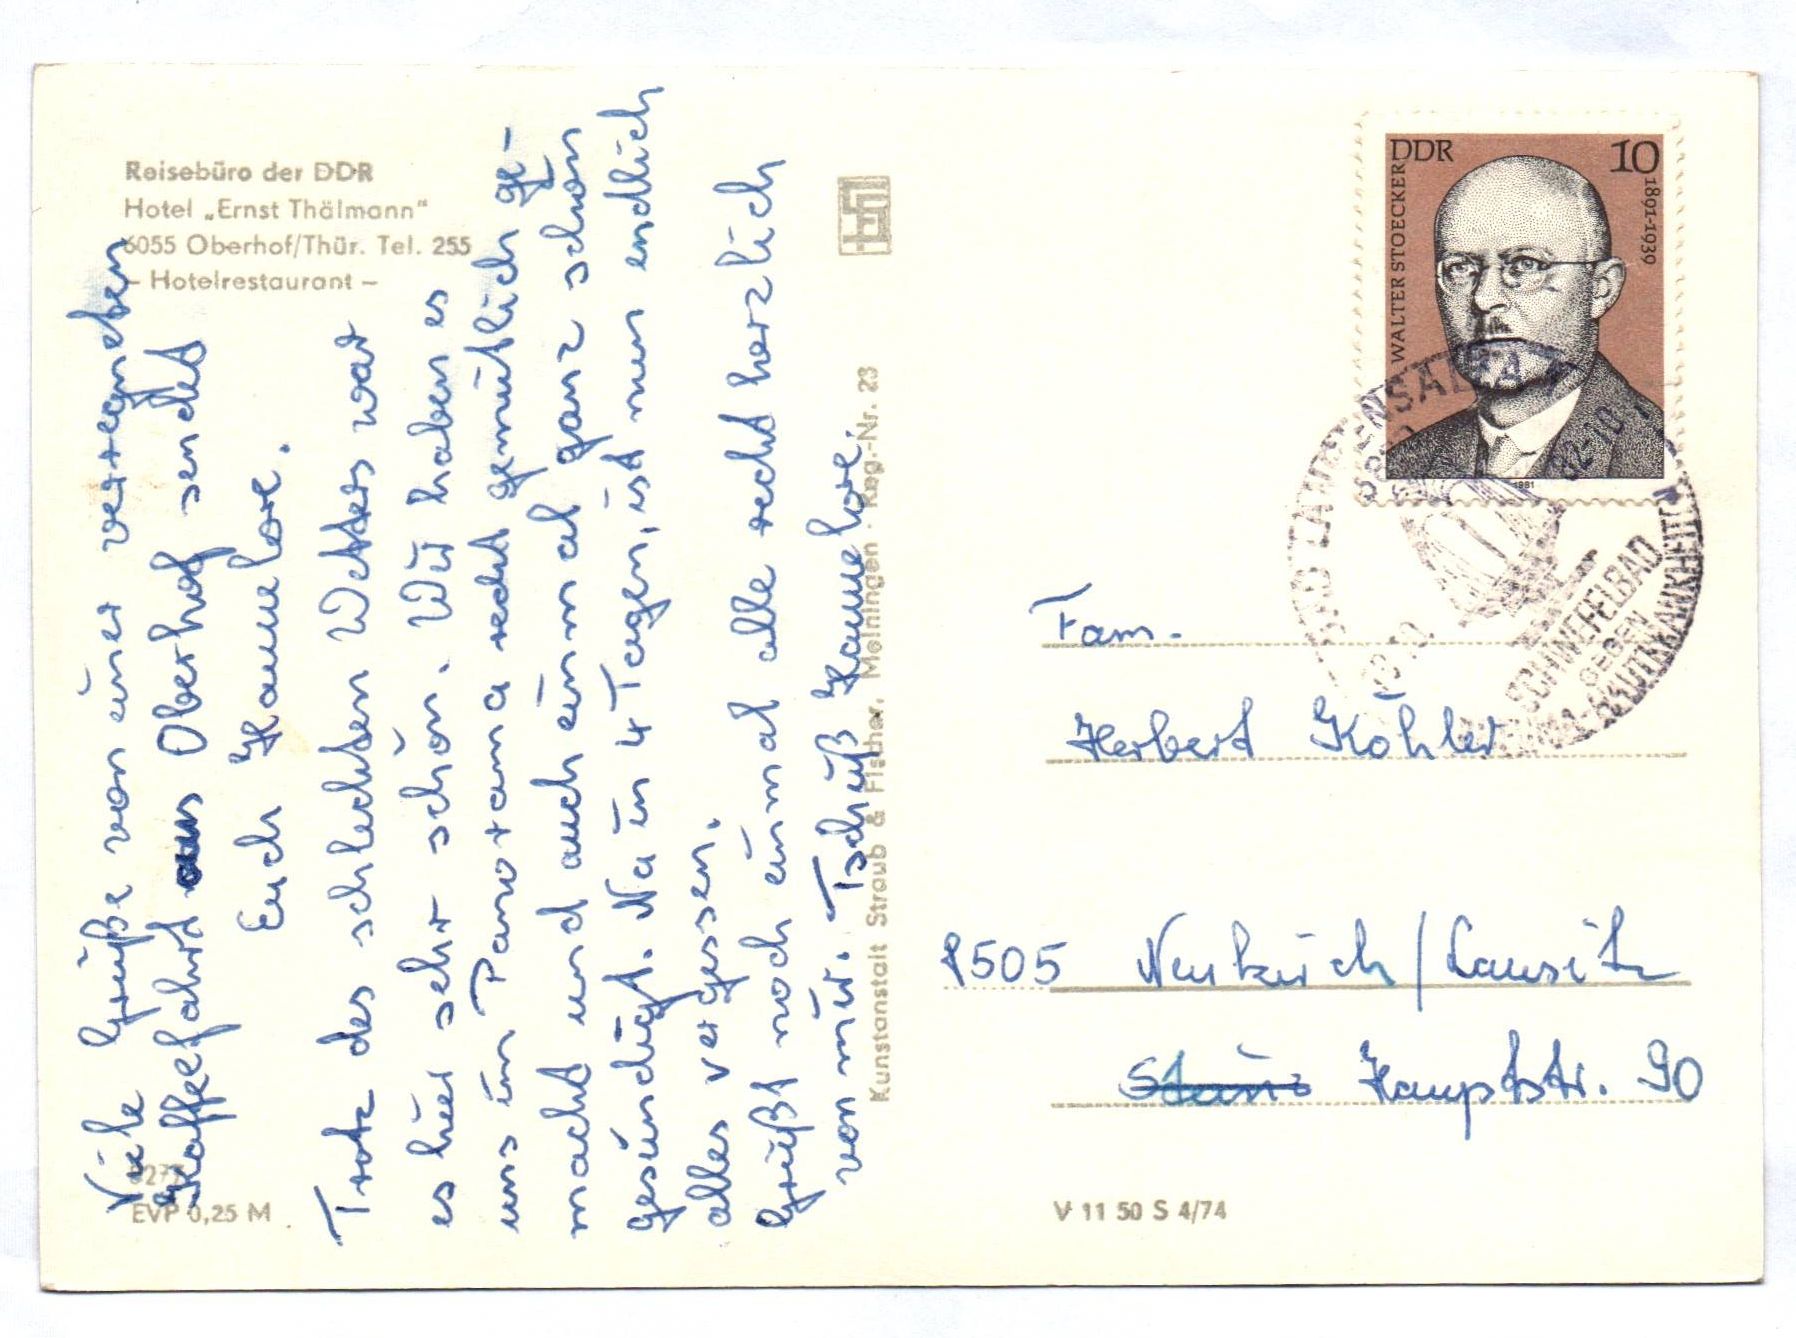 Reisebüro der DDR
Hotel „Ernst Thälmann“
6055 Oberhof/Thür. Tel. 255
– Hotelrestaurant –
Viele Grüße von einer verregneten
Kaffeefahrt aus Oberhof sendet
Euch Hannelore.
Trotz des schlechten Wetters war
es hier sehr schön. Wir haben es
uns im Panorama recht gemütlich ge-
macht und auch einmal ganz schön
gesündigt. Na in 4 Tagen, ist nun endlich
alles vergessen.
Grüßt noch einmal alle recht herzlich
von mir. Tschüß Hannelore.
EVP 0,25 M
Kunstanstalt Straub & Fischer, Meiningen · Reg.-Nr. 23
DDR
10
WALTER STOECKER
1891-1939
1981
BAD LANGENSALZA
SCHWEFELBAD
GEGEN
Fam.
Herbert Köhler
8505 Neukirch/Lausitz
Hauptstr. 90
V 11 50 S 4/74